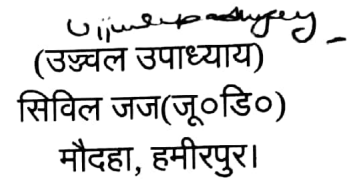 (उज्ज्वल उपाध्याय)
सिविल जज(जू०डि०)
मौदहा, हमीरपुर।